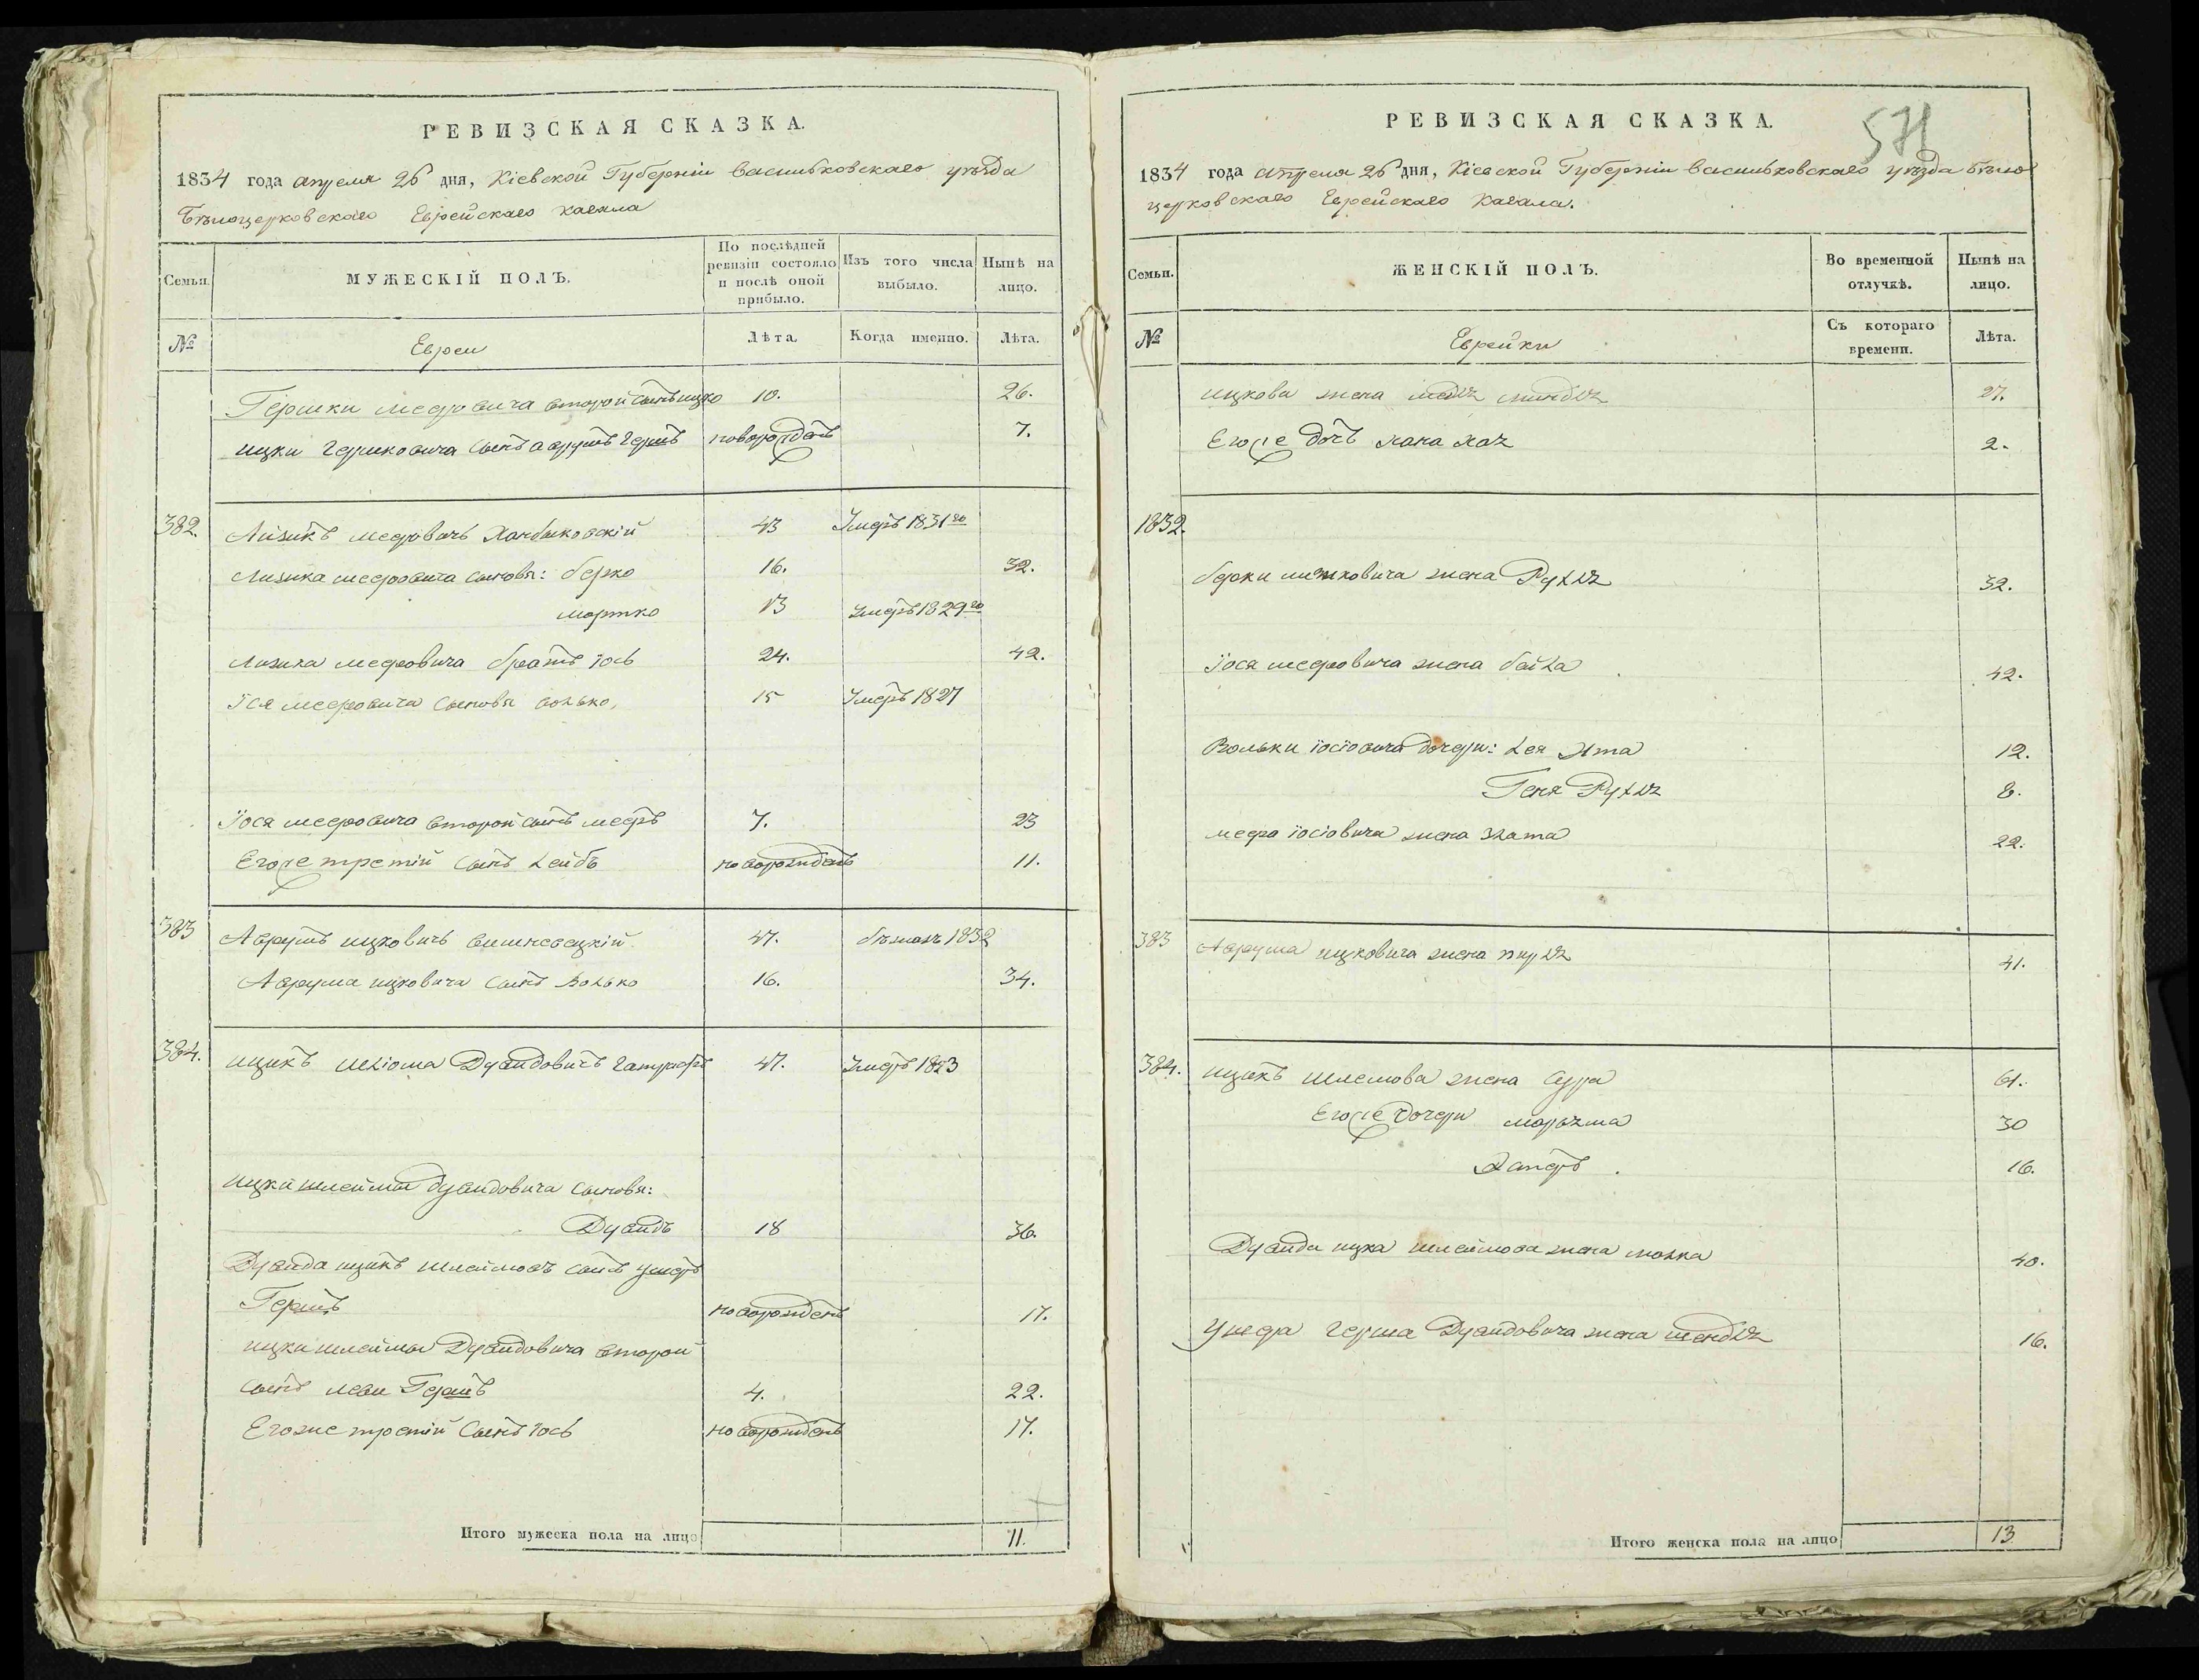 РЕВИЗСКАЯ СКАЗКА.
1834 года апреля 26 дня, Кіевской Губерніи васильковскаго уѣзда
Бѣлоцерковскаго Еврейскаго кагала
Семьи.
МУЖЕСКІЙ ПОЛЪ.
По послѣдней ревизіи состояло и послѣ оной прибыло.
Изъ того числа выбыло.
Нынѣ на лицо.
№
Евреи
Лѣта.
Когда именно.
Лѣта.
Гершки мееровича второй сынъ ицко 10. 26.
ицки гершковича сынъ аврумъ гершъ новорожденъ 7.
382. Айзикъ мееровичъ 43 Умеръ 1831го
Айзика мееровича сыновья: берко 16. 32.
мортко 13 Умеръ 1829го
Айзика мееровича братъ іось 24. 42.
Іося мееровича сыновья волько, 15 Умеръ 1827
Іося мееровича второй сынъ мееръ 7. 23
Егоже третій сынъ лейбъ новорожденъ 11.
383 Аврумъ ицковичъ вишневецкій 47. бѣжалъ 1832
Аврума ицковича сынъ волько 16. 34.
384. ицикъ шліома Дувидовичъ 47. Умеръ 1823
ицки шлеймы дувидовича сыновья:
Дувидъ 18 36.
Дувида ицикъ шлеймовъ сынъ ушеръ
Гершъ новорожденъ 17.
ицки шлеймы Дувидовича второй
сынъ леви Гершъ 4. 22.
Егоже третій сынъ іось новорожденъ 17.
Итого мужеска пола на лицо 11.
571
РЕВИЗСКАЯ СКАЗКА.
1834 года апреля 26 дня, Кіевской Губерніи васильковскаго уѣзда бѣло
церковскаго Еврейскаго кагала.
Семьи.
ЖЕНСКІЙ ПОЛЪ.
Во временной отлучкѣ.
Нынѣ на лицо.
№
Еврейки
Съ котораго времени.
Лѣта.
ицкова жена миндля 27.
Егоже дочь хана хая 2.
1832.
берки жена Рухля 32.
Іося мееровича жена бейла 42.
Вольки іосіовича дочери: лея Ита 12.
Геня Рухля 8.
меера іосіовича жена злата 22.
383 Аврума ицковича жена перля 41.
384. ицикъ шлемова жена сура 61.
Егоже дочери марьяма 30
16.
Дувида ицка шлеймова жена малка 40.
Ушера герша Дувидовича жена шендля 16.
Итого женска пола на лицо 13